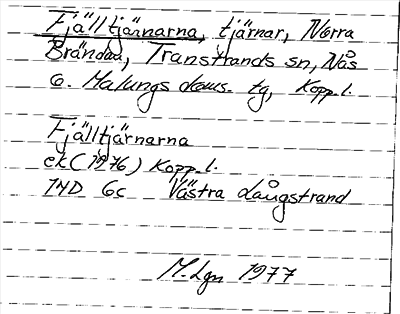 Fjälltjärnarna, tjärnar, Norra
Brändan, Transtrands sn, Nås
o. Malungs doms. tg, Kopp. l.
Fjälltjärnarna
ek (1976) Kopp. l.
14D 6c Västra Långstrand
M. Lgn 1977